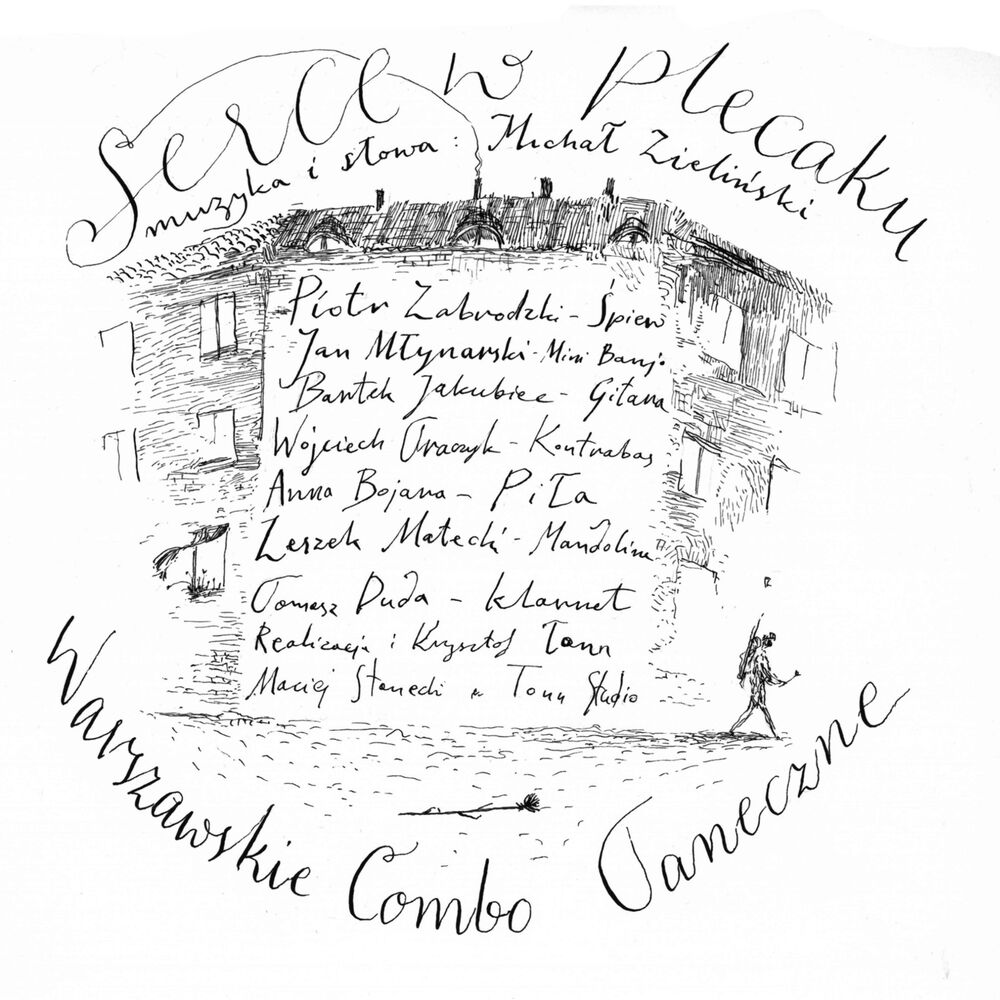 Serce w plecaku
muzyka i słowa: Michał Zieliński
Piotr Zabrodzki - Śpiew
Jan Młynarski - Mini Banjo
Bartek Jakubiec - Gitara
Wojciech Traczyk - Kontrabas
Anna Bojara - PiŁa
Leszek Małecki - Mandolina
Tomasz Duda - klarnet
Realizacja i Krzysztof Tonn
Maciej Stanecki w Tonn Studio
Warszawskie Combo Taneczne